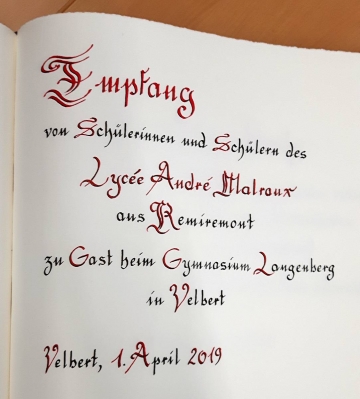 Empfang
von Schülerinnen und Schülern des
Lycée André Malraux
aus Remiremont
zu Gast beim Gymnasium Langenberg
in Velbert
Velbert, 1. April 2019